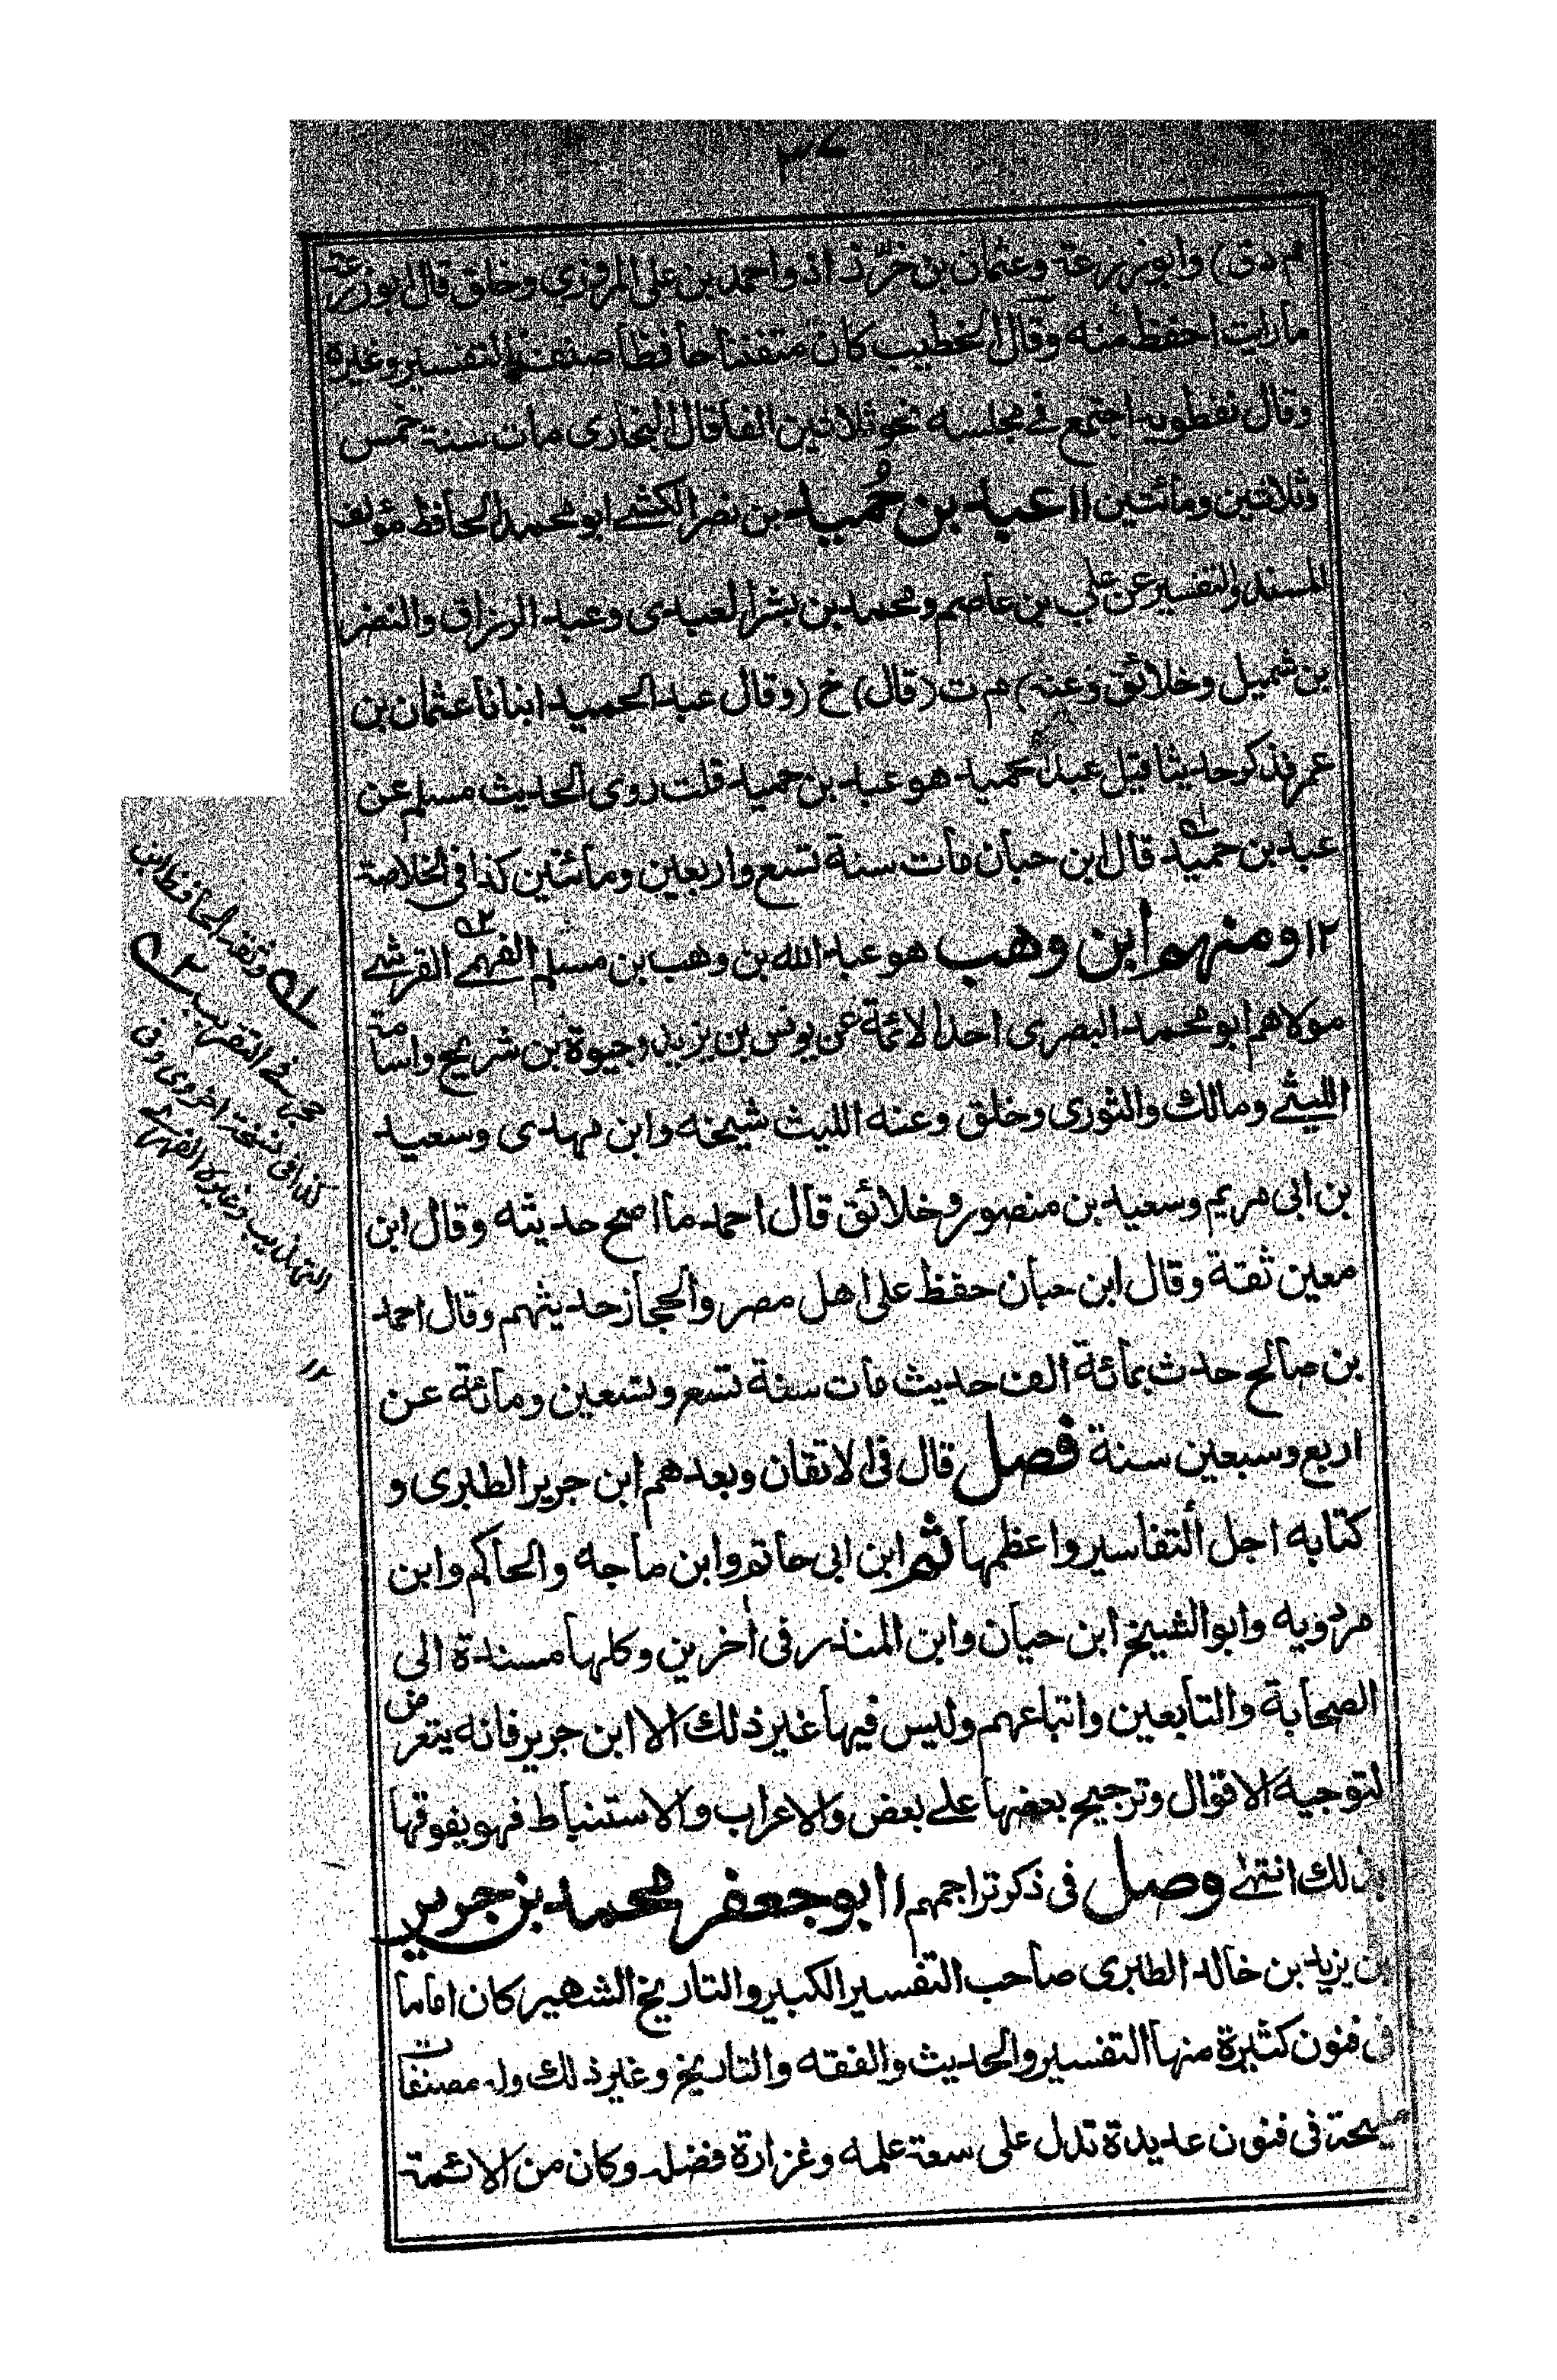 م د ق) وابو زرعة وعثمان بن خرّزاذ واحمد بن على المروزى وخلق قال ابو زرعة
مارايت احفظ منه وقال الخطيب كان متقنا حافظا صنف التفسير وغيره
وقال نفطويه اجتمع فى مجلسه نحو ثلاثين الفا قال البخارى مات سنة خمس
وثلاثين ومائتين ١١ عبد بن حُميد بن نصر الكشے ابو محمد الحافظ مؤلف
المسند والتفسير عن علي بن عاصم ومحمد بن بشر العبدى وعبد الرزاق والنضر
بن شميل وخلائق وعنه) م ت (قال) خ (وقال عبد الحميد انبانا عثمان بن
عمر فذكر حديثا قيل عبد الحميد هو عبد بن حميد قلت روى الحديث مسلم عن
عبد بن حميد ١ه قال ابن حبان مات سنة تسع واربعين ومائتين كذا فى الخلاصة
١٢ ومنهم ابن وهب هو عبد الله بن وهب بن مسلم الفهمے ٢ه القرشے
مولاهم ابو محمد البصرى احد الائمة عن يونس بن يزيد وحيوة بن شريح واسامة
الليثے ومالك والثورى وخلق وعنه الليث شيخه وابن مهدى وسعيد
بن ابى مريم وسعيد بن منصور وخلائق قال احمد ما اصح حديثه وقال ابن
معين ثقة وقال ابن حبان حفظ على اهل مصر والحجاز حديثهم وقال احمد
بن صالح حدث بمائة الف حديث مات سنة تسع وتسعين ومائة عن
اربع وسبعين سنة فصل قال فى الاتقان وبعدهم ابن جرير الطبرى و
كتابه اجل التفاسير واعظمها ثم ابن ابى حاتم وابن ماجه والحاكم وابن
مردويه وابو الشيخ ابن حيان وابن المنذر فى أخرين وكلها مسندة الى
الصحابة والتابعين واتباعهم وليس فيها غير ذلك الا ابن جرير فانه يتعرض
لتوجيه الاقوال وترجيح بعضها علے بعض والاعراب والاستنباط فهو يفوقها
بذلك انتهے وصل فى ذكر تراجمهم ١ ابو جعفر محمد بن جرير
بن يزيد بن خالد الطبرى صاحب التفسير الكبير والتاريخ الشهير كان اماما
فى فنون كثيرة منها التفسير والحديث والفقه والتاريخ وغير ذلك وله مصنفات
مليحة فى فنون عديدة تدل على سعة علمه وغزارة فضله وكان من الائمة
١ه وثقه الحافظ ابن
حجر فى التقريب ٢ه
كذا فى نسخة اخرى وفى
التهذيب وغيره الفهرى
١٢